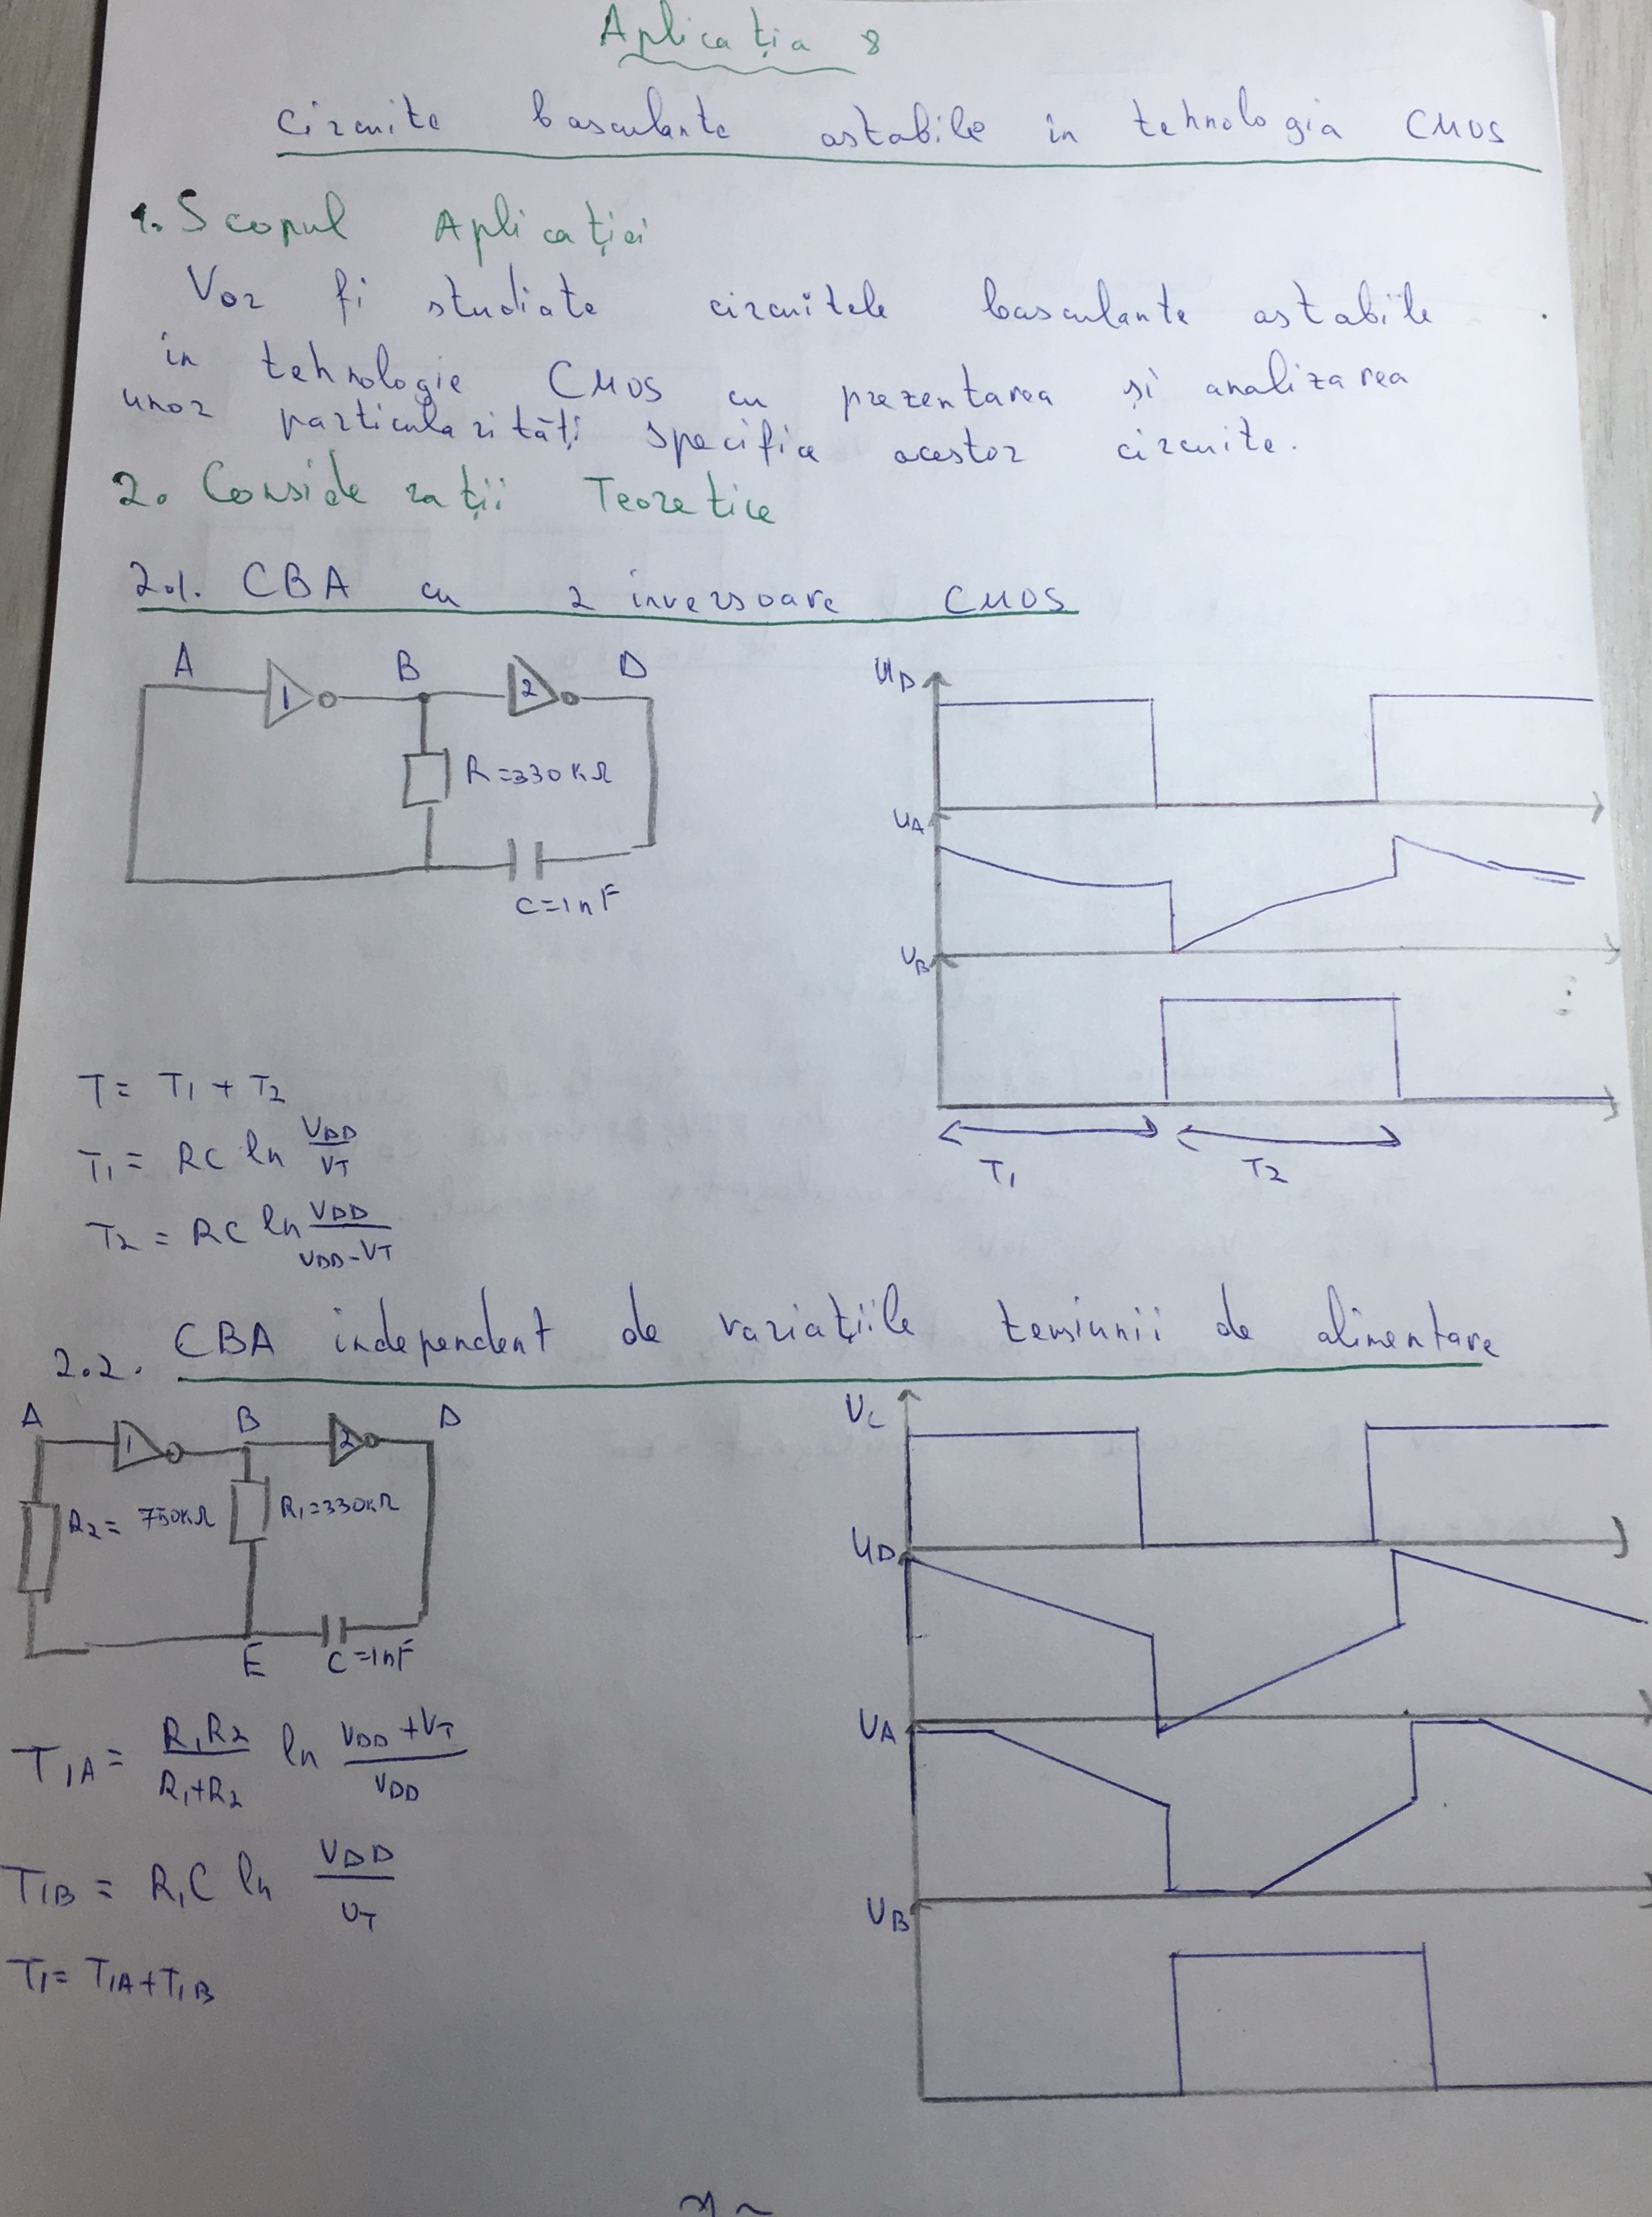 Aplicația 8
Circuite basculante astabile în tehnologia CMOS
1. Scopul Aplicației
Vor fi studiate circuitele basculante astabile
în tehnologie CMOS cu prezentarea și analizarea
unor particularități specifice acestor circuite.
2. Considerații Teoretice
2.1. CBA cu 2 inversoare CMOS
A 1 B 2 D
R=330KΩ
C=1nF
UD
UA
UB
T1 T2
T= T1 + T2
T1= RC ln VDD/VT
T2= RC ln VDD/VDD-VT
2.2. CBA independent de variațiile tensiunii de alimentare
A 1 B 2 D
R2= 750KΩ R1=330KΩ
E C=1nF
UC
UD
UA
UB
T1A= R1R2/R1+R2 ln VDD+VT/VDD
T1B= R1C ln VDD/VT
T1= T1A+T1B